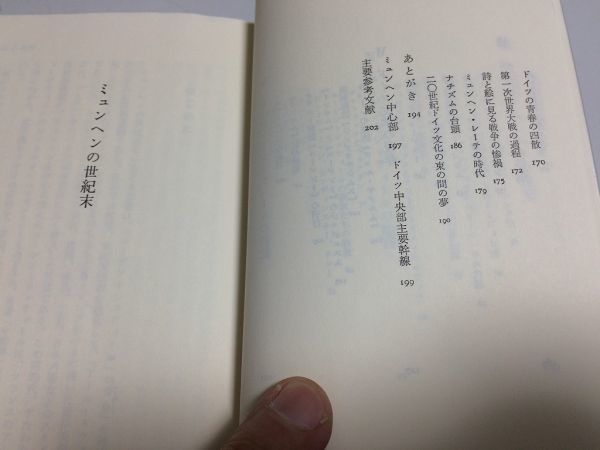 ドイツの青春の四散 170
第一次世界大戦の過程 172
詩と絵に見る戦争の惨禍 175
ミュンヘン・レーテの時代 179
ナチズムの台頭 186
二〇世紀ドイツ文化の束の間の夢 190
あとがき 194
ミュンヘン中心部 197 ドイツ中央部主要幹線 199
主要参考文献 202
ミュンヘンの世紀末